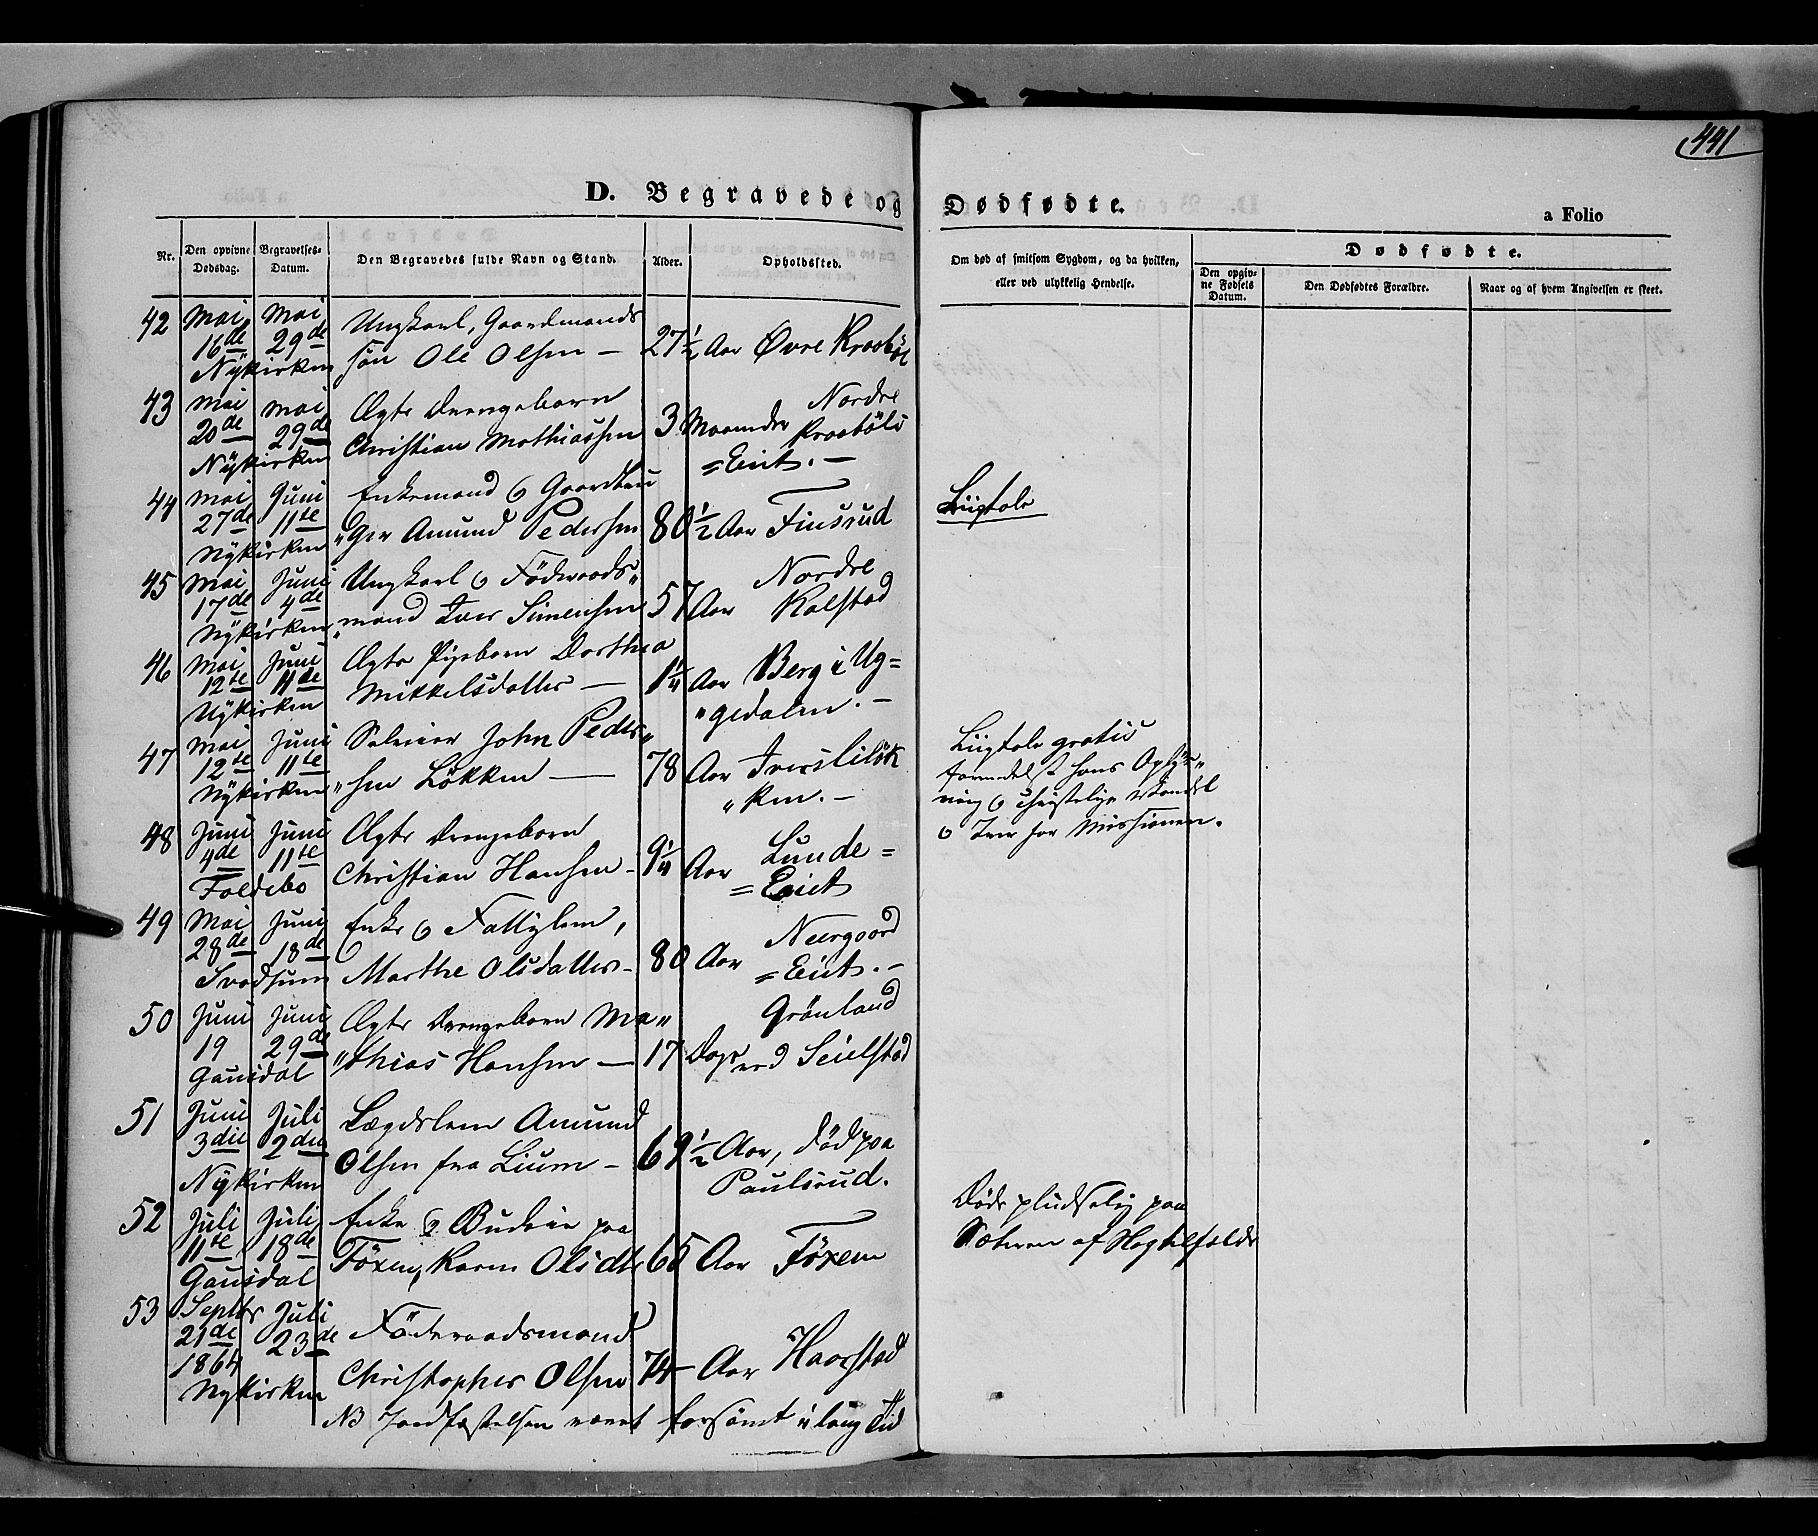 441
D. Begravede og Dødfødte.
a Folio
Nr.
Den opgivne Dødsdag.
Begravelses-Datum.
Den Begravedes fulde Navn og Stand.
Alder.
Opholdssted.
Om død af smitsom Sygdom, og da hvilken, eller ved ulykkelig Hendelse.
Dødfødte.
Den opgivne Fødsels Datum.
Den Dødfødtes Forældre.
Naar og af hvem Angivelsen er skeet.
42 Mai Mai Ungkarl, Gaardmands
16de 29de søn Ole Olsen — 27½ Aar Øvre Kraabøl
Nykirken
43 Mai Mai Ægte Drengebarn Nordre
20de 29de Christian Mathiassen 3 Maaneder Kraabøls
Nykirken =Eiet. —
44 Mai Juni Enkemand & Gaardbru Liigtale
27de 11te "ger Amund Pedersen 80½ Aar Fiusrud
Nykirken
45 Mai Juni Ungkarl & Föderaads" Nordre
17de 4de "mand Iver Simensen 57 Aar Kalstad
Nykirken
46 Mai Juni Ægte Pigebarn Dorthea
12te 11te Mikkelsdatter — 1¼ Aar Berg i Ug=
Nykirken "gedalen. —
47 Mai Juni Selveier John Peder" Liigtale gratis
12te 11te "sen Løkken — 78 Aar Iversliløk formedelst hans Oplys"
Nykirken "ken. — ning & christelige Vandel
& Iver for Missionen.
48 Juni Juni Ægte Drengebarn
4de 11te Christian Hansen — 9¼ Aar Lunde=
Foldebo =Eiet
49 Mai Juni Enke & Fattiglem, Neergaard
28de 18de Marthe Olsdatter — 80 Aar =Eiet. —
Svadsum
50 Juni Juni Ægte Drengebarn Ma" Grönland
19 29de "thias Hansen — 17 Dage ved Seielstad
Gausdal
51 Juni Juli Lægdslem Amund
3die 2den Olsen fra Lium — 69½ Aar, død paa
Nykirken Paulsrud.
52 Juli Juli Enke & Budeie paa Døde pludselig paa
11te 18de Föxen, Karen Olsdtr 65 Aar Föxen Sæteren af
Gausdal
53 Septbr Juli Föderaadsmand
21de 23de Christopher Olsen 74 — Aar Haarstad
1864
Nykirken
NB Jordfæstelsen været forsömt i lang Tid